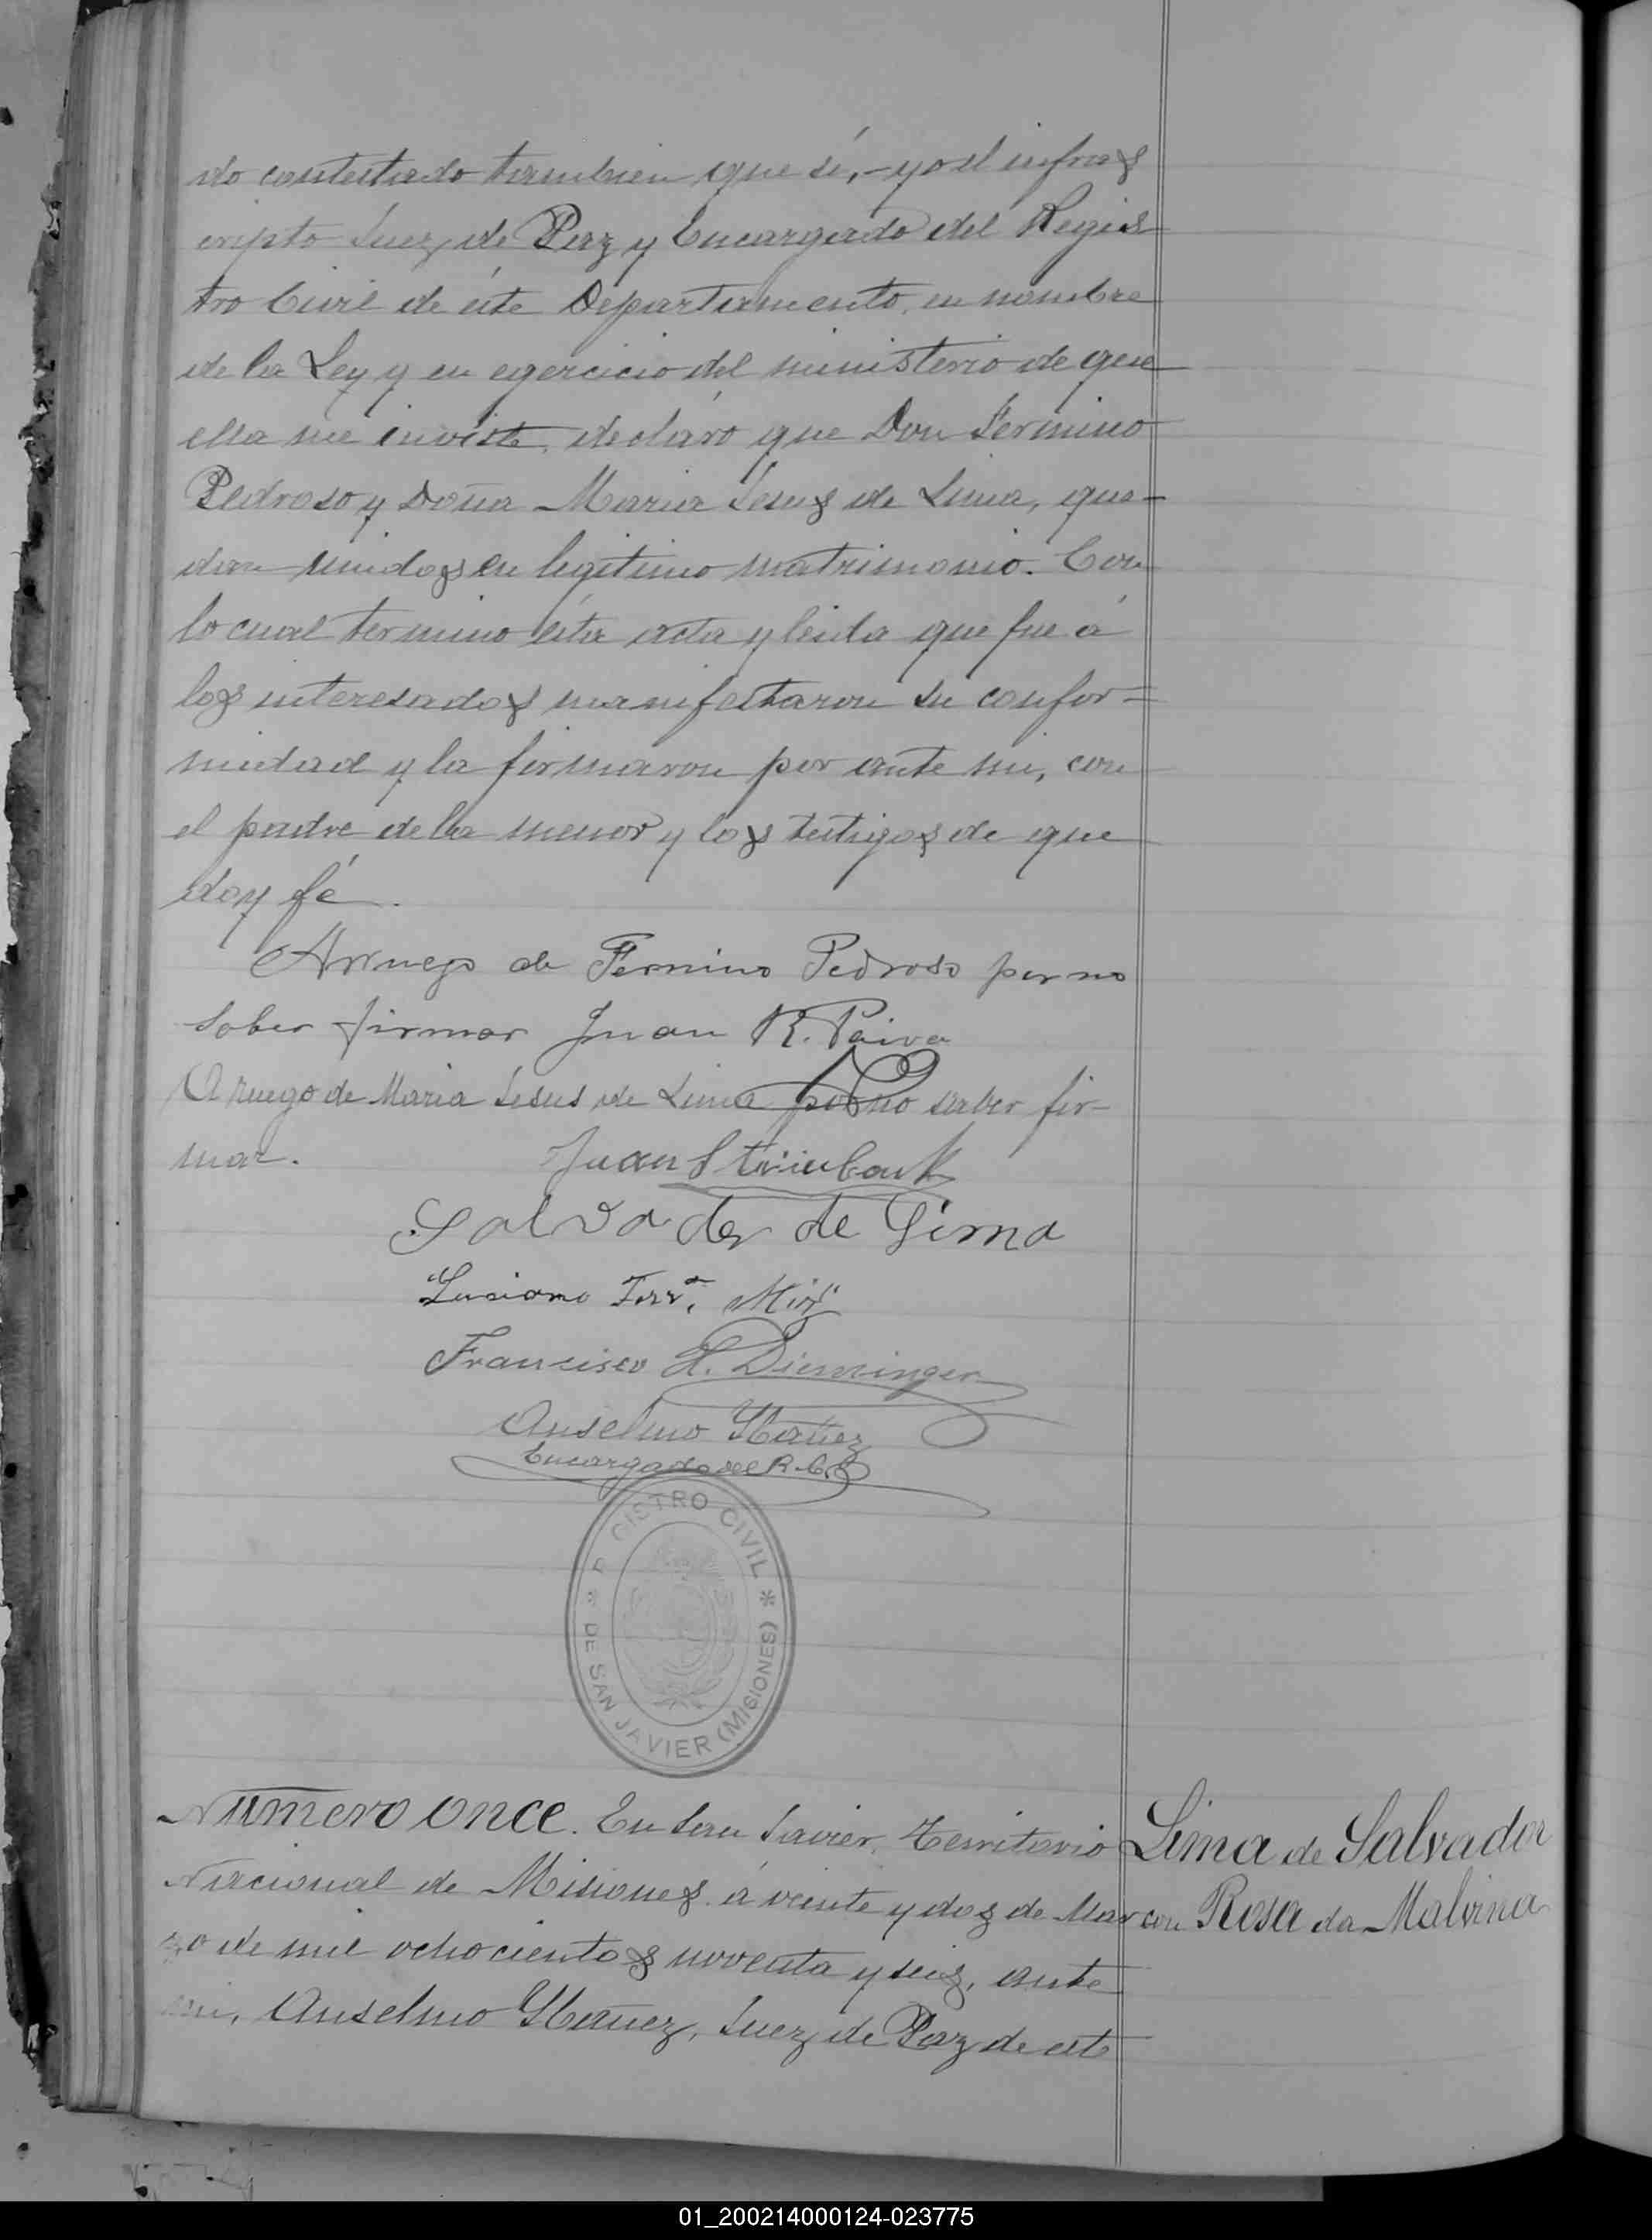 do contestado tambien que sí, - yo el infras
cripto Juez de Paz y Encargado del Regis
tro Civil de éste Departamento, en nombre
de la Ley y en egercicio del ministerio de que
ella me inviste, decláro que Don Fermino
Pedroso y Doña Maria Jesus de Lima, que-
dan unidos en legitimo matrimonio. Con
lo cual termino ésta acta y leida que fue á
los interesados manifestaron su confor=
midad y la firmaron por ante mi, con
el padre de la menor y los testigos de que
doy fé.
Arruego de Fermino Pedroso por no
saber firmar Juan R. Paiva
A ruego de Maria Jesus de Lima por no saber fir-
mar. Juan
Salvador de Lima
"Lusiano Ferr.ª
Francisco H.
Anselmo Ybañez
Encargado del R. C.
REGISTRO CIVIL
* DE SAN JAVIER (MISIONES) *
Número once. En San Javier, Territorio
Nacional de Misiones, á veinte y dos de Mar
zo de mil ochocientos noventa y seis, ante
mi, Anselmo Ybañez, Juez de Paz de este
Lima de Salvador
con Rosa da Malvina
01_200214000124-023775